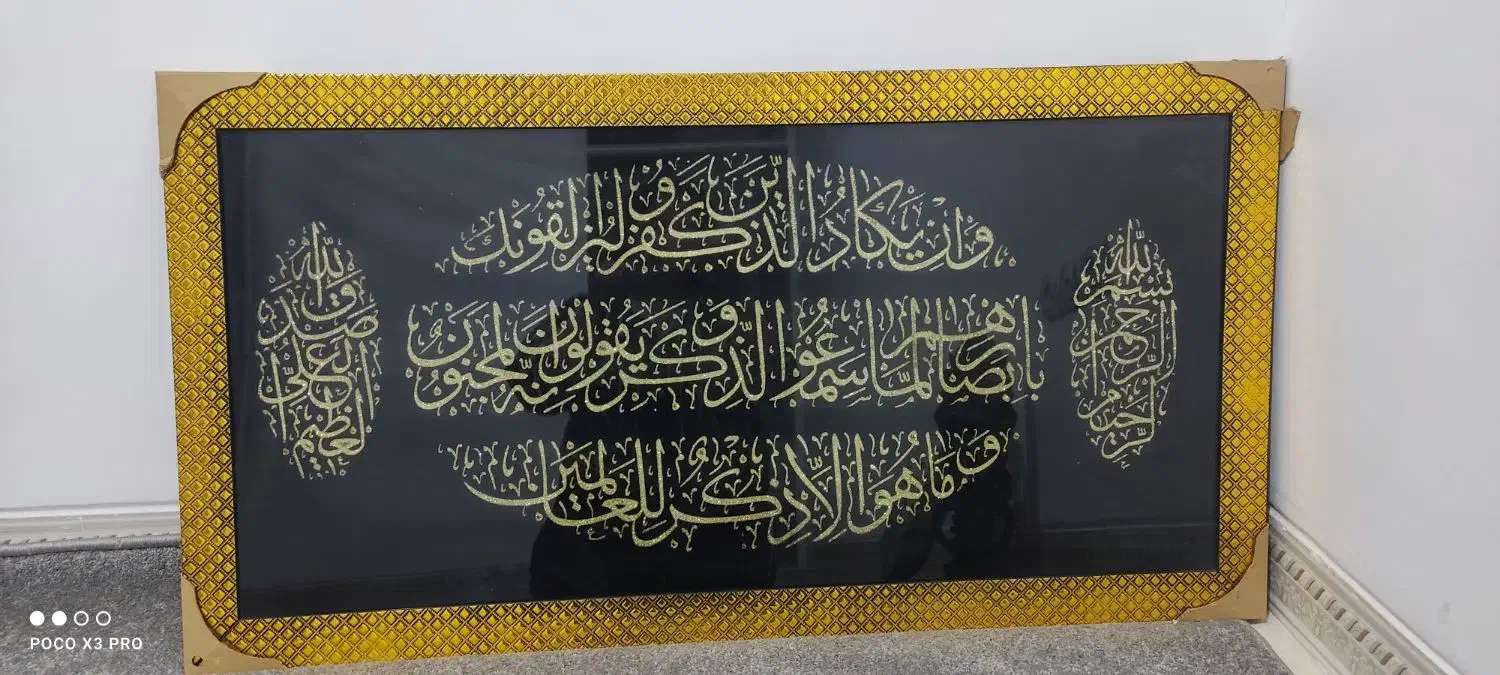 بسم الله
الرحمن
الرحيم
وَاِن يَكَادُ الَّذِينَ كَفَرُوا لَيُزْلِقُونَكَ
بِاَبْصَارِهِمْ لَمَّا سَمِعُوا الذِّكْرَ وَيَقُولُونَ اِنَّهُ لَمَجْنُونٌ
وَمَا هُوَ اِلَّا ذِكْرٌ لِلْعَالَمِينَ
صدق الله
العلي
العظيم
POCO X3 PRO